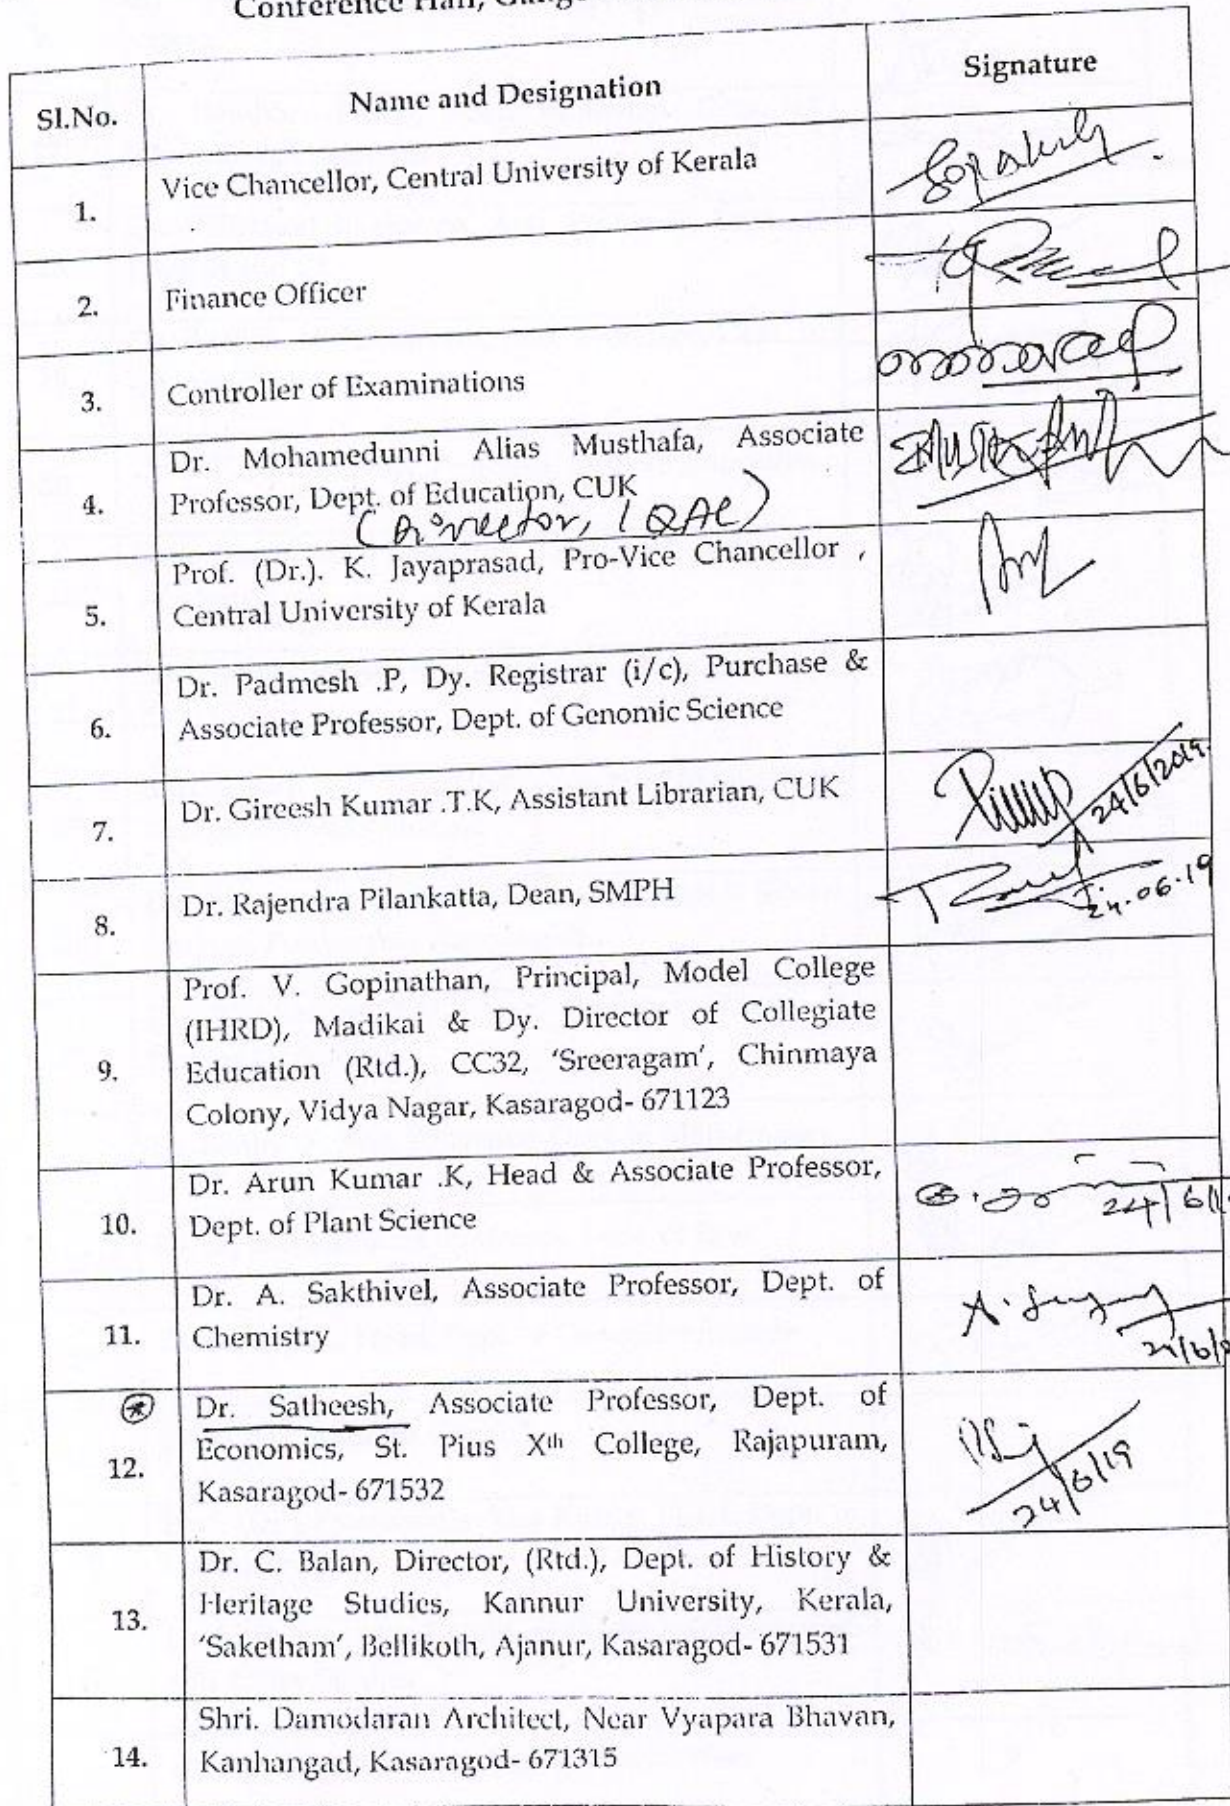 Conference Hall,
Sl.No. Name and Designation Signature
1. Vice Chancellor, Central University of Kerala
2. Finance Officer
3. Controller of Examinations
4. Dr. Mohamedunni Alias Musthafa, Associate
Professor, Dept. of Education, CUK
(Director, IQAC)
5. Prof. (Dr.). K. Jayaprasad, Pro-Vice Chancellor ,
Central University of Kerala
6. Dr. Padmesh .P, Dy. Registrar (i/c), Purchase &
Associate Professor, Dept. of Genomic Science
7. Dr. Gireesh Kumar .T.K, Assistant Librarian, CUK
24/6/2019.
8. Dr. Rajendra Pilankatta, Dean, SMPH
24.06.19
9. Prof. V. Gopinathan, Principal, Model College
(IHRD), Madikai & Dy. Director of Collegiate
Education (Rtd.), CC32, ‘Sreeragam’, Chinmaya
Colony, Vidya Nagar, Kasaragod- 671123
10. Dr. Arun Kumar .K, Head & Associate Professor,
Dept. of Plant Science
24/6/
11. Dr. A. Sakthivel, Associate Professor, Dept. of
Chemistry
12. Dr. Satheesh, Associate Professor, Dept. of
Economics, St. Pius Xth College, Rajapuram,
Kasaragod- 671532
24/6/19
13. Dr. C. Balan, Director, (Rtd.), Dept. of History &
Heritage Studies, Kannur University, Kerala,
‘Saketham’, Bellikoth, Ajanur, Kasaragod- 671531
14. Shri. Damodaran Architect, Near Vyapara Bhavan,
Kanhangad, Kasaragod- 671315